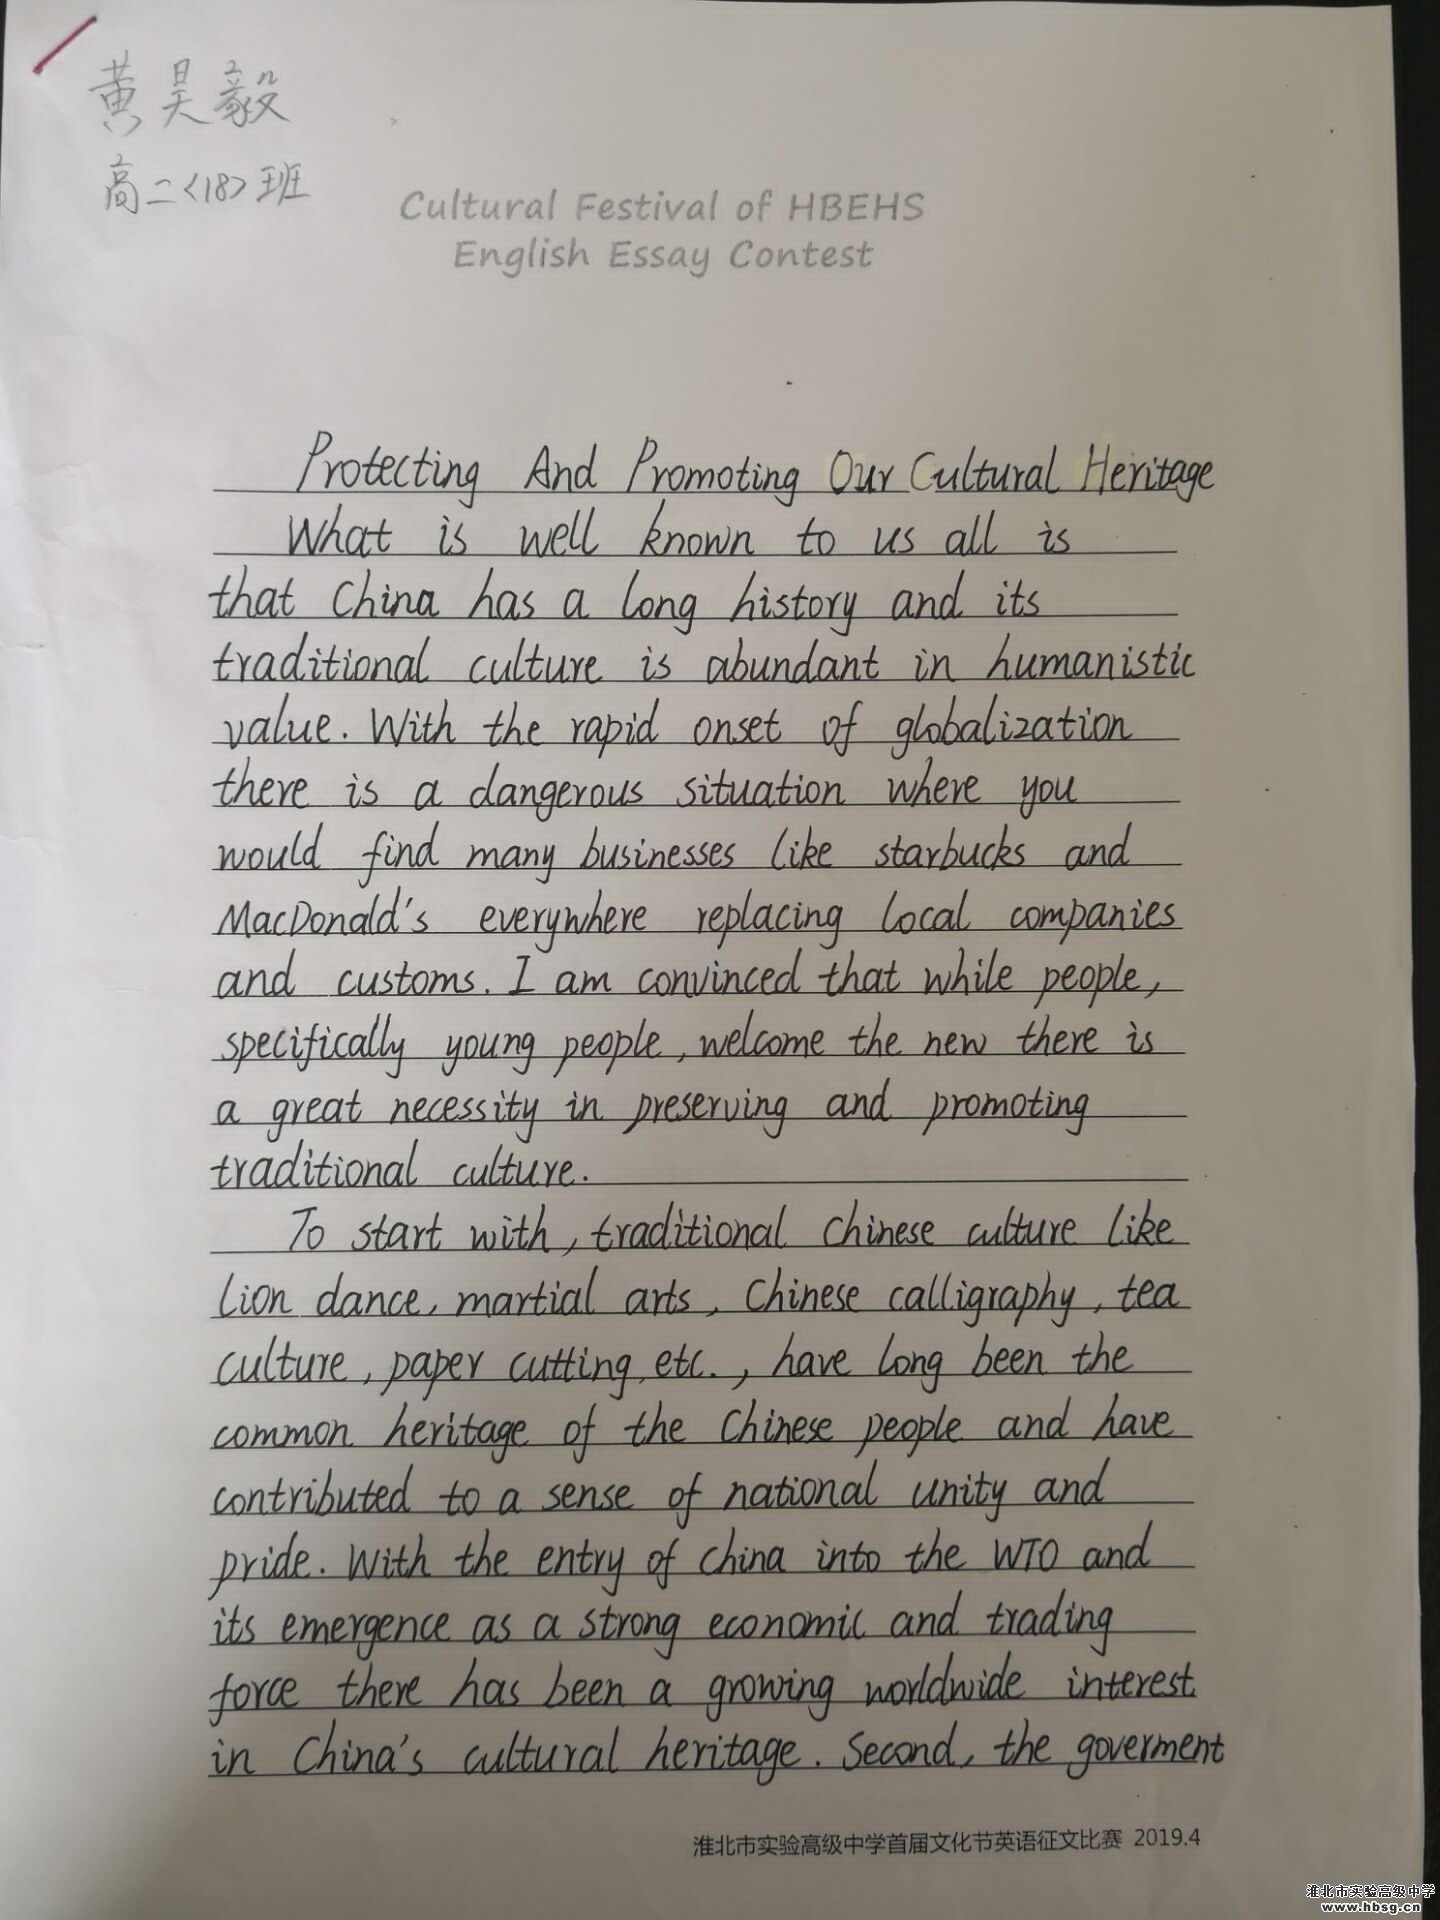 黄昊毅
高二<18>班
Cultural Festival of HBEHS
English Essay Contest
Protecting And Promoting Our Cultural Heritage
What is well known to us all is
that China has a long history and its
traditional culture is abundant in humanistic
value. With the rapid onset of globalization
there is a dangerous situation where you
would find many businesses like starbucks and
MacDonald's everywhere replacing local companies
and customs. I am convinced that while people,
specifically young people, welcome the new there is
a great necessity in preserving and promoting
traditional culture.
To start with, traditional Chinese culture like
lion dance, martial arts, Chinese calligraphy, tea
culture, paper cutting, etc., have long been the
common heritage of the Chinese people and have
contributed to a sense of national unity and
pride. With the entry of China into the WTO and
its emergence as a strong economic and trading
force there has been a growing worldwide interest
in China's cultural heritage. Second, the goverment
淮北市实验高级中学首届文化节英语征文比赛 2019.4
淮北市实验高级中学
www.hbsg.cn